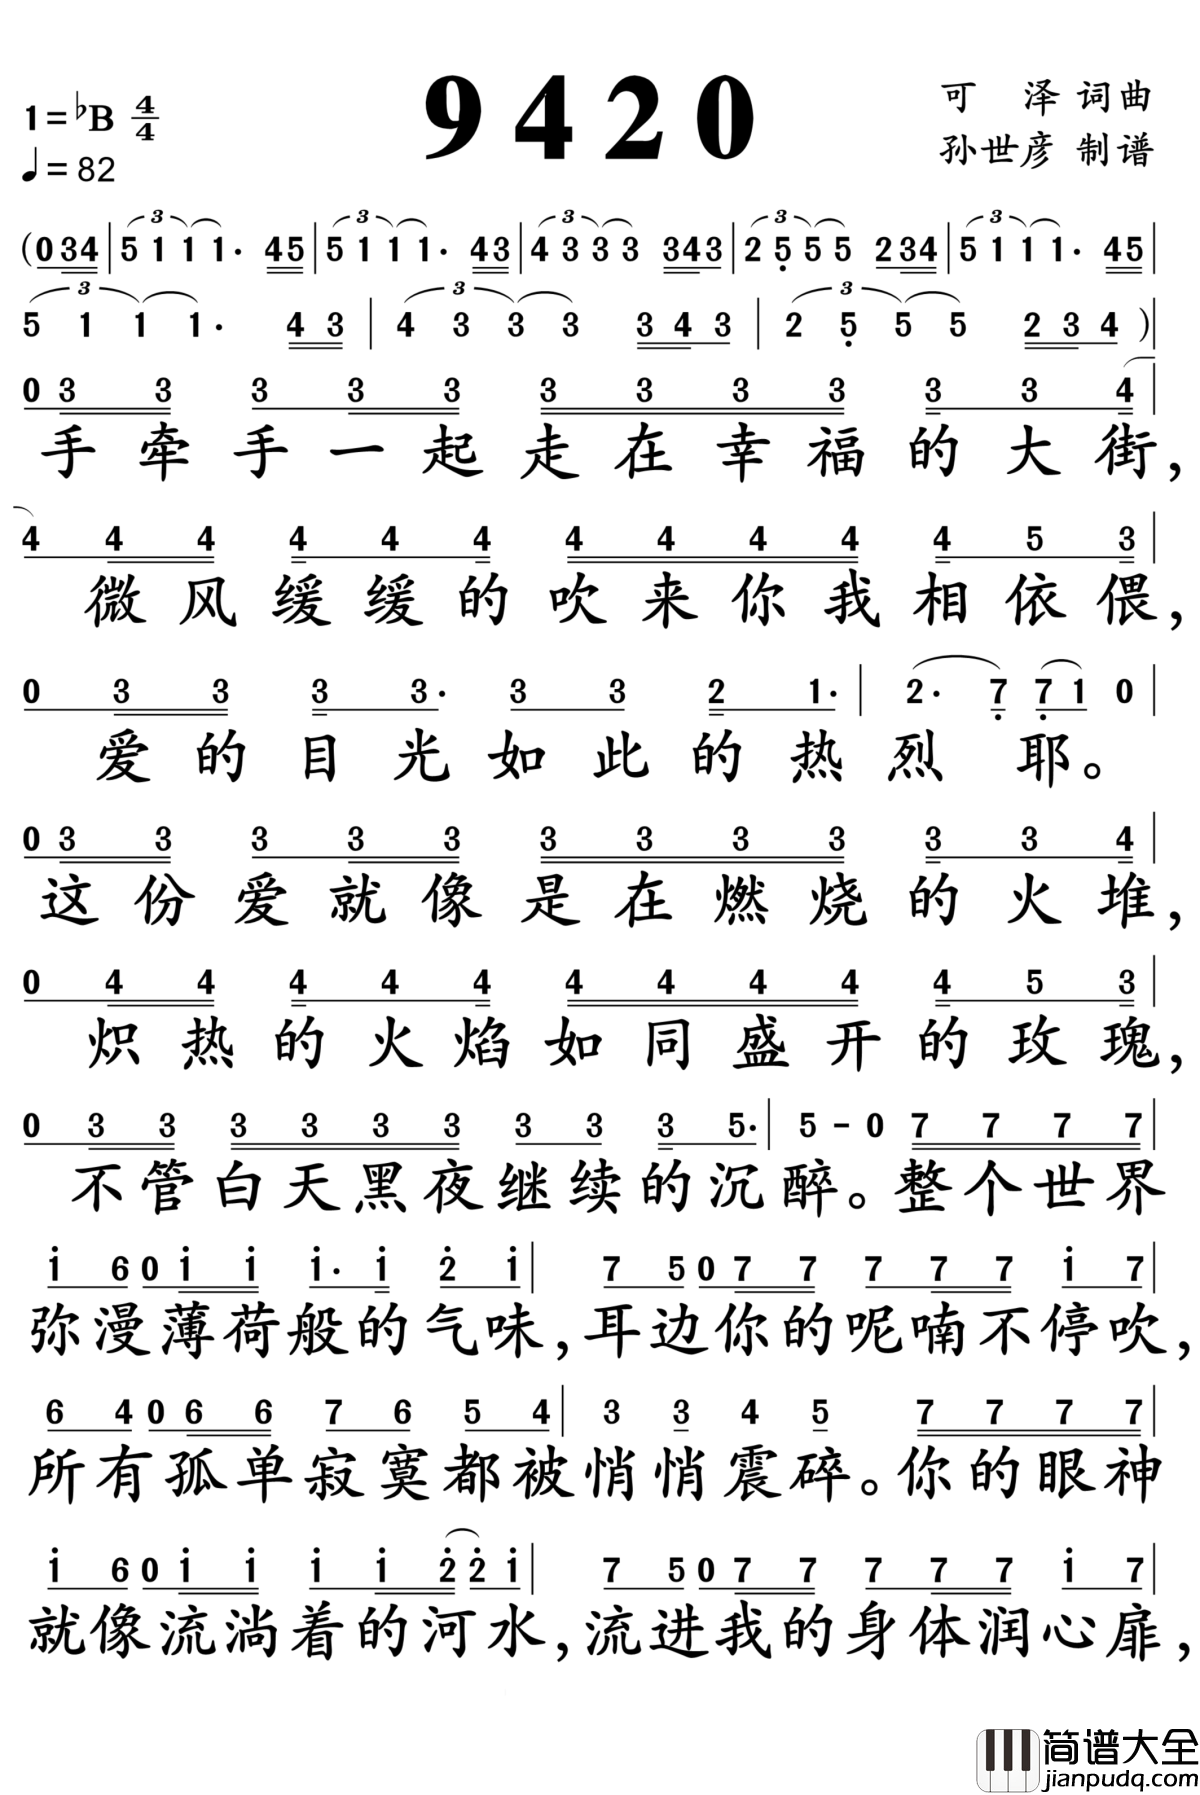 9420
1=♭B 4/4
♩=82
可 泽 词曲
孙世彦 制谱
(0 3 4 | 5 1 1 1· 4 5 | 5 1 1 1· 4 3 | 4 3 3 3 3 4 3 | 2 5 5 5 2 3 4 | 5 1 1 1· 4 5 |
5 1 1 1· 4 3 | 4 3 3 3 3 4 3 | 2 5 5 5 2 3 4 )|
0 3 3 3 3 3 3 3 3 3 3 3 4 |
手牵手一起走在幸福的大街,
4 4 4 4 4 4 4 4 4 4 4 5 3 |
微风缓缓的吹来你我相依偎,
0 3 3 3 3· 3 3 2 1· | 2· 7 7 1 0 |
爱的目光如此的热烈耶。
0 3 3 3 3 3 3 3 3 3 3 3 4 |
这份爱就像是在燃烧的火堆,
0 4 4 4 4 4 4 4 4 4 4 5 3 |
炽热的火焰如同盛开的玫瑰,
0 3 3 3 3 3 3 3 3 3 5· | 5 - 0 7 7 7 7 |
不管白天黑夜继续的沉醉。整个世界
i 6 0 i i i· i 2 i | 7 5 0 7 7 7 7 7 i 7 |
弥漫薄荷般的气味,耳边你的呢喃不停吹,
6 4 0 6 6 7 6 5 4 | 3 3 4 5 7 7 7 7 |
所有孤单寂寞都被悄悄震碎。你的眼神
i 6 0 i i i i 2 2 i | 7 5 0 7 7 7 7 7 i 7 |
就像流淌着的河水,流进我的身体润心扉,
简谱大全
jianpudq.com